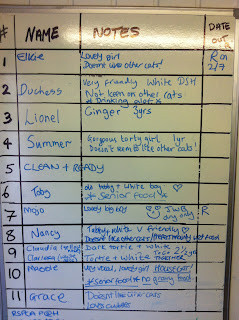 # NAME NOTES DATE OUT
1 Ellie Lovely girl R on
Doesn't like other cats! 2/7
2 Duchess Very friendly white DSH
Not keen on other cats
* Drinking a lot *
3 Lionel Ginger 3yrs
4 Summer Gorgeous torty girl 1yr
Doesn't seem to like other cats!
5 CLEAN + READY
6 Toby old baby + white boy
* Senior food *
7 Mojo Lovely big boy R
8 Nancy V friendly
Doesn't like other cats
9 Claudia Dark tortie + white
Tortie + white
10 Maggie Very vocal, lovely girl HOUSE CAT!
* Senior food *
11 Grace Doesn't like other cats
Loves cuddles
RSPCA